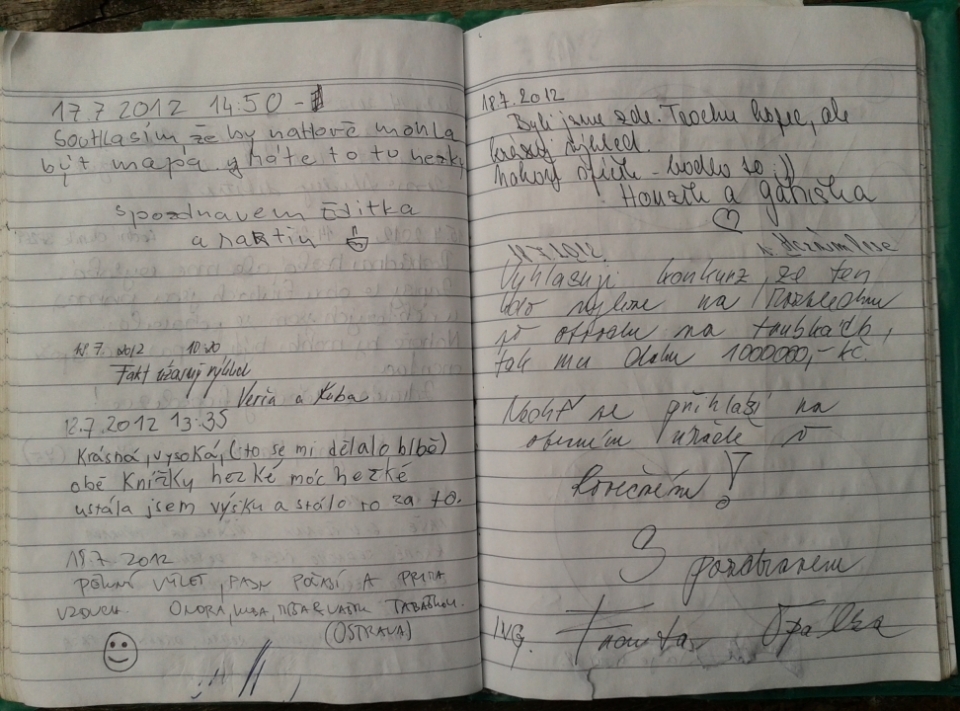 17.7 2012 14:50 -
Souhlasím, že by nahoře mohla
být mapa. máte to tu hezky
spozdravem Editka
a martin
18.7. 2012 10:20
Fakt úžasný výhled
Verča a Kuba
18.7.2012 13:35
Krásná, vysoká, (ito se mi dělalo blbě)
obě Knížky hezké moc hezké
ustála jsem výšku a stálo to za to.
18.7 2012
PĚKNÝ VÝLET, POČASÍ A PRIMA
VZDUCH. TABAČKOU.
(OSTRAVA)
18.7.2012
Byli jsme zde. Trochu kopec, ale
krásný výhled.
Honzík a Gábiška
18.7.2012
Vyhlašuji konkurz, ze ten
kdo vyleze na Rozhlednu
po obvodu na
tak mu dám 1000000,- kč.
Nechť se přihlásí na
obecním úřadě v
!
S pozdravem
ING. Opálka